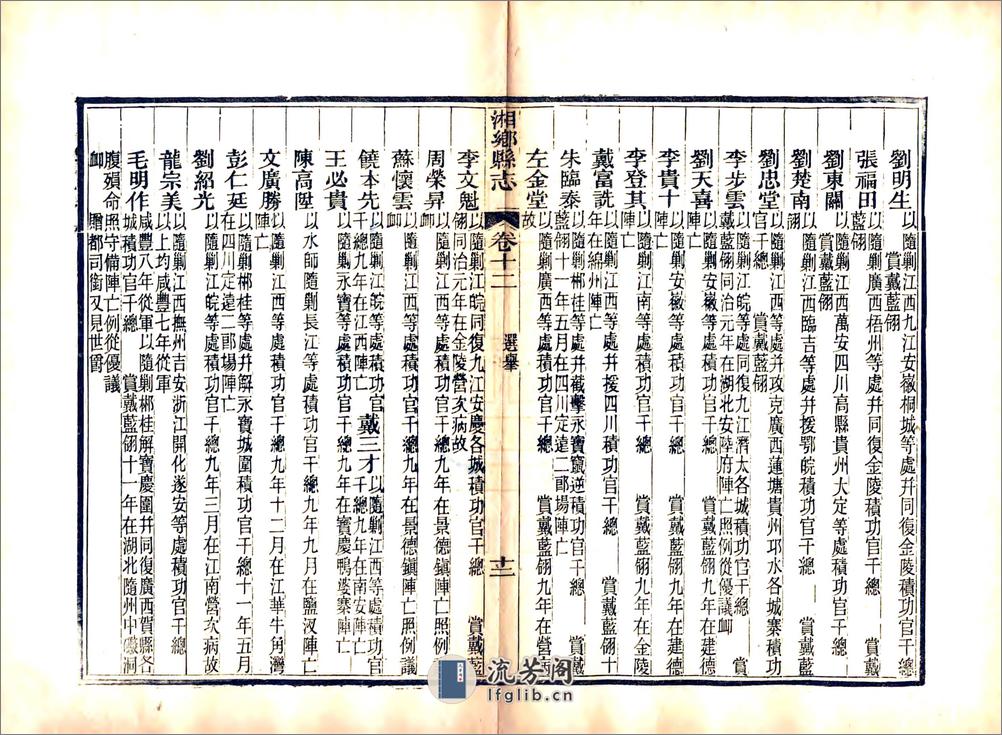 劉明生以隨剿江西九江安徽桐城等處幷同復金陵積功官千總
賞戴藍翎
張福田以隨剿廣西梧州等處幷同復金陵積功官千總 賞戴
藍翎
劉東關以隨剿江西萬安四川高縣貴州大定等處積功官千總
賞戴藍翎
劉楚南以隨剿江西臨吉等處幷援鄂皖積功官千總 賞戴藍
翎
劉忠堂以隨剿江西等處幷攻克廣西蓮塘貴州邛水各城寨積功
官千總 賞戴藍翎
李步雲以隨剿江皖等處同復九江濟太各城積功官千總 賞
戴藍翎同治元年在湖北安陸府陣亡照例從優議卹
劉天喜以隨剿安徽等處積功官千總 賞戴藍翎九年在建德
陣亡
李貴十以隨剿安徽等處積功官千總 賞戴藍翎九年在建德
陣亡
李登其以隨剿江南等處積功官千總 賞戴藍翎九年在金陵
陣亡
戴富詵以隨剿江西等處幷援四川積功官千總 賞戴藍翎十
年在綿州陣亡
朱臨泰以隨剿郴桂等處幷截擊永寶竄逆積功官千總 賞戴
藍翎十一年五月在四川定遠二郎場陣亡
左金堂以隨剿廣西等處積功官千總 賞戴藍翎九年在營病
故
湘鄉縣志 卷十二 選舉 十二
李文魁以隨剿江皖同復九江安慶各城積功官千總 賞戴藍
翎同治元年在金陵營次病故
周榮昇以隨剿江西等處積功官千總九年在景德鎭陣亡照例議
卹
蘇懷雲以隨剿江西等處積功官千總九年在景德鎭陣亡照例議
卹
饒本先以隨剿江皖等處積功官千總九年在江西陣亡
戴三才以隨剿江西等處積功官千總九年在南安陣亡
王必貴以隨剿永寶等處積功官千總九年在寶慶鴨婆寨陣亡
陳高陞以水師隨剿長江等處積功官千總九年九月在臨汊陣亡
文廣勝以隨剿江西等處積功官千總九年十二月在江華牛角灣
陣亡
彭仁廷以隨剿郴桂等處幷解永寶城圍積功官千總十一年五月
在四川定遠二郎場陣亡
劉紹光以隨剿江皖等處積功官千總九年三月在江南營次病故
龍宗美以隨剿江西撫州吉安浙江開化遂安等處積功官千總
以上均咸豐七年從軍
毛明作咸豐八年從軍以隨剿郴桂解寶慶圍幷同復廣西賀縣各
城積功官千總 賞戴藍翎十一年在湖北隨州中礮洞
腹殞命照守備陣亡例從優議
卹 贈都司銜又見世爵
流芳閣
lfglib.cn